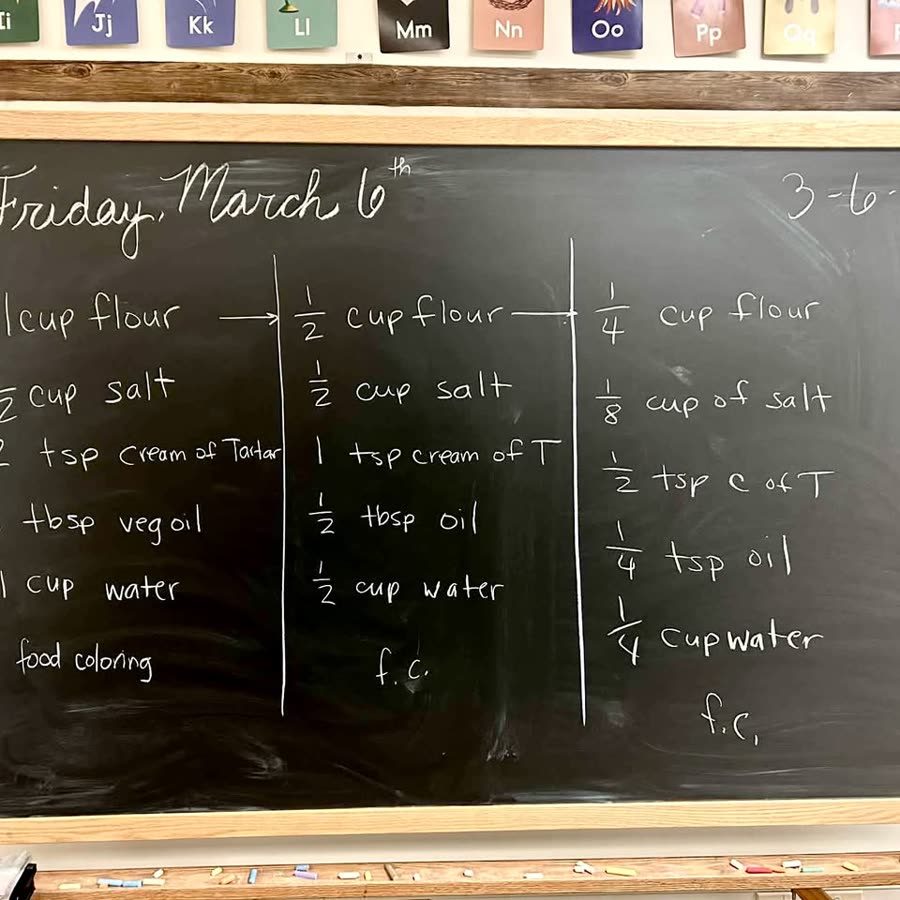 Ii Jj Kk Ll Mm Nn Oo Pp Qq
Friday, March 6th
3-6-
1 cup flour
1/2 cup flour
1/4 cup flour
cup salt
1/2 cup salt
1/8 cup of salt
tsp cream of Tartar
1 tsp cream of T
1/2 tsp c of T
tbsp veg oil
1/2 tbsp oil
1/4 tsp oil
1 cup water
1/2 cup water
1/4 cup water
food coloring
f.c.
f.c.